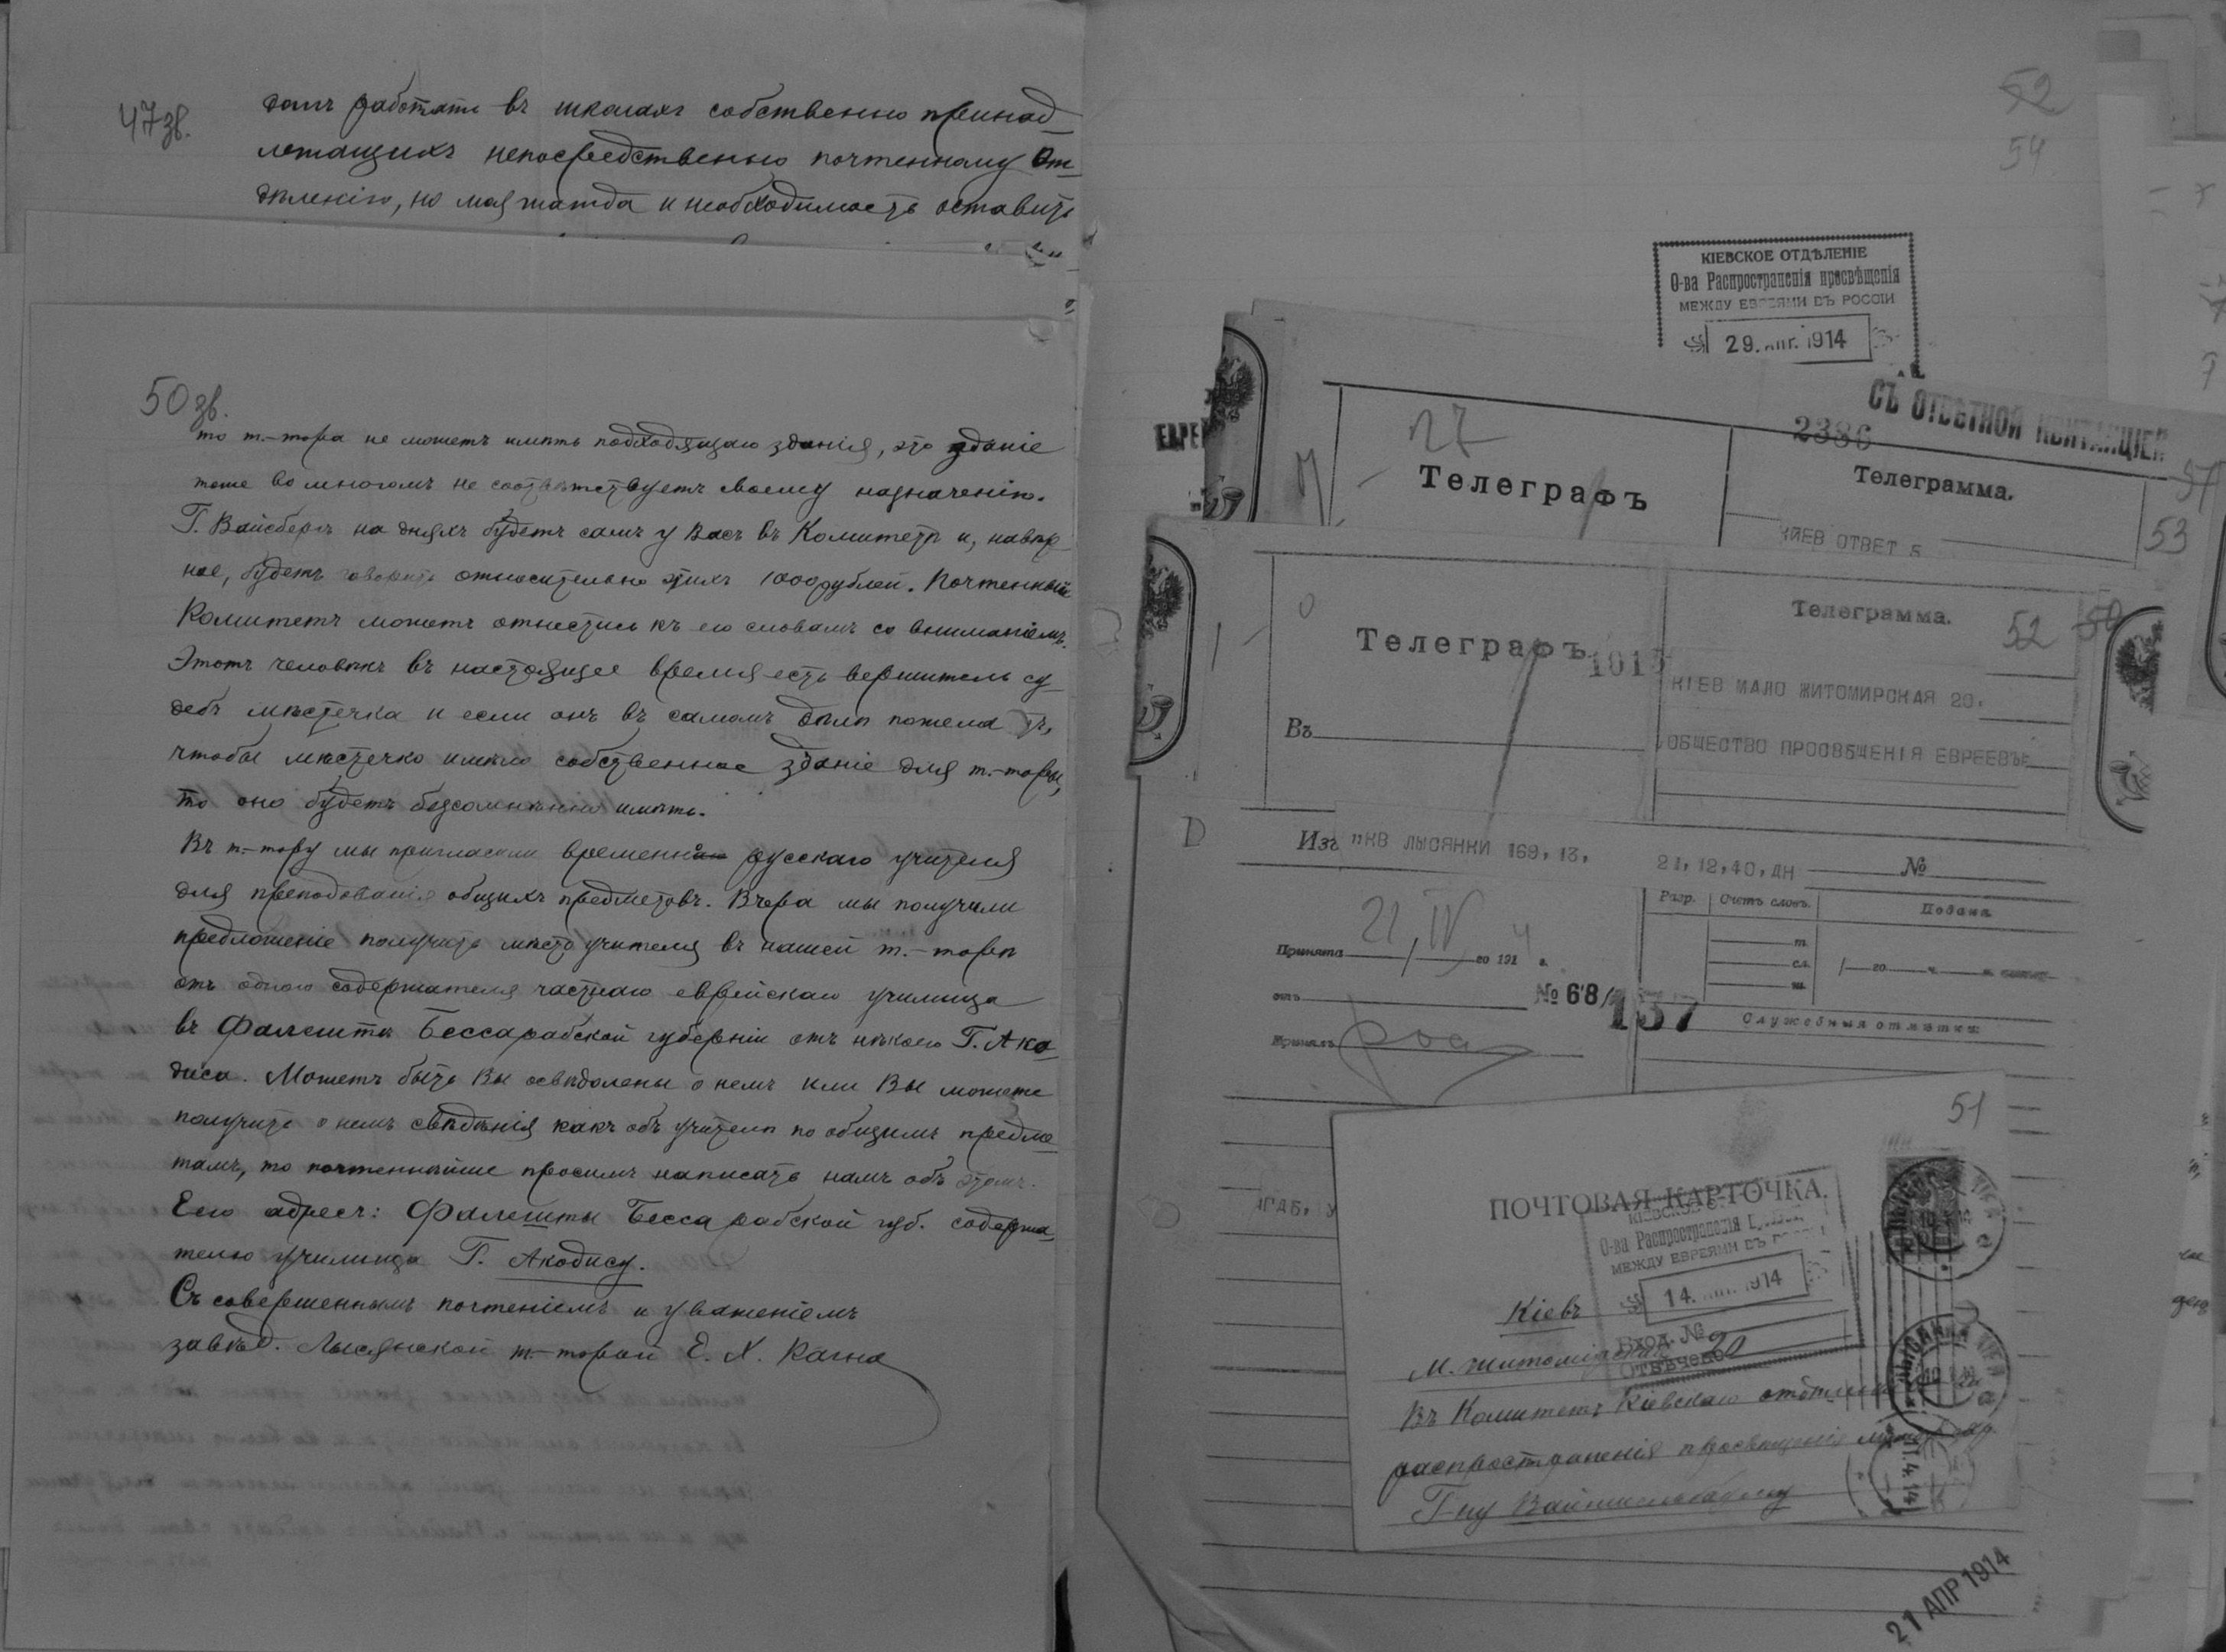 47 зв.
домъ работать въ школахъ собственно принад-
лежащихъ непосредственно почтенному От-
дѣленію, но моя жажда и необходимость оставить
50 зв.
то т.-тора не можетъ имѣть подходящаго зданія, это зданіе
тоже во многомъ не соотвѣтствуетъ своему назначенію.
Г. Вайсбергъ на дняхъ будетъ самъ у Васъ въ Комитетѣ и, навѣр-
ное, будетъ говорить относительно этихъ 1000 рублей. Почтенный
Комитетъ можетъ отнестись къ его словамъ со вниманіемъ.
Этотъ человѣкъ въ настоящее время есть вершитель су-
дебъ мѣстечка и если онъ въ самомъ дѣлѣ пожелаетъ,
чтобы мѣстечко имѣло собственное зданіе для т.-торы,
то оно будетъ безсомнѣнно имѣть.
Въ т.-тору мы пригласили временно русскаго учителя
для преподованія общихъ предметовъ. Вчера мы получили
предложеніе получить мѣсто учителя въ нашей т.-торѣ
отъ одного содержателя частнаго еврейскаго училища
въ Фалешты Бессарабской губерніи отъ нѣкоего Г. Ако-
диса. Можетъ быть Вы освѣдомлены о немъ или Вы можете
получить о немъ свѣдѣнія какъ объ учителѣ по общимъ предме-
тамъ, то почтеннѣйше просимъ написать намъ объ этомъ.
Его адресъ: Фалешты Бессарабской губ. содержа-
телю училища Г. Акодису.
Съ совершеннымъ почтеніемъ и уваженіемъ
завѣд. Лысянской т.-торой Е. Х. Кагна
52
54
КІЕВСКОЕ ОТДѢЛЕНІЕ
О-ва Распространенія просвѣщенія
МЕЖДУ ЕВРЕЯМИ ВЪ РОССІИ
29. Апр. 1914
СЪ ОТВѢТНОЙ КВИТАНЦІЕЙ
2386
27
ЕВРЕ
Телеграфъ
Телеграмма.
КИЕВ ОТВЕТ 5
53
Телеграфъ
1015
Телеграмма.
52
КІЕВ МАЛО ЖИТОМИРСКАЯ 20.
ОБЩЕСТВО ПРОСВѢЩЕНІЯ ЕВРЕЕВЪ
Въ
Изъ ПКВ ЛЫСЯНКИ 169, 13,
21, 12,40, ДН
№
Разр.
Счетъ словъ.
Подана
Принята 21/IV го 191 4 г.
т.
сл.
ш.
го
отъ
№ 68/
137
Служебныя отмѣтки
Принялъ
51
ПОЧТОВАЯ КАРТОЧКА.
О-ва Распространенія
МЕЖДУ ЕВРЕЯМИ ВЪ
14. 1914
Вход. №
Отвѣчено
Кіевъ
М. Житомірская 20
Въ Комитетъ Кіевскаго отдѣленія
распространенія просвѣщенія
Г-ну
11.4.14
21 АПР 1914